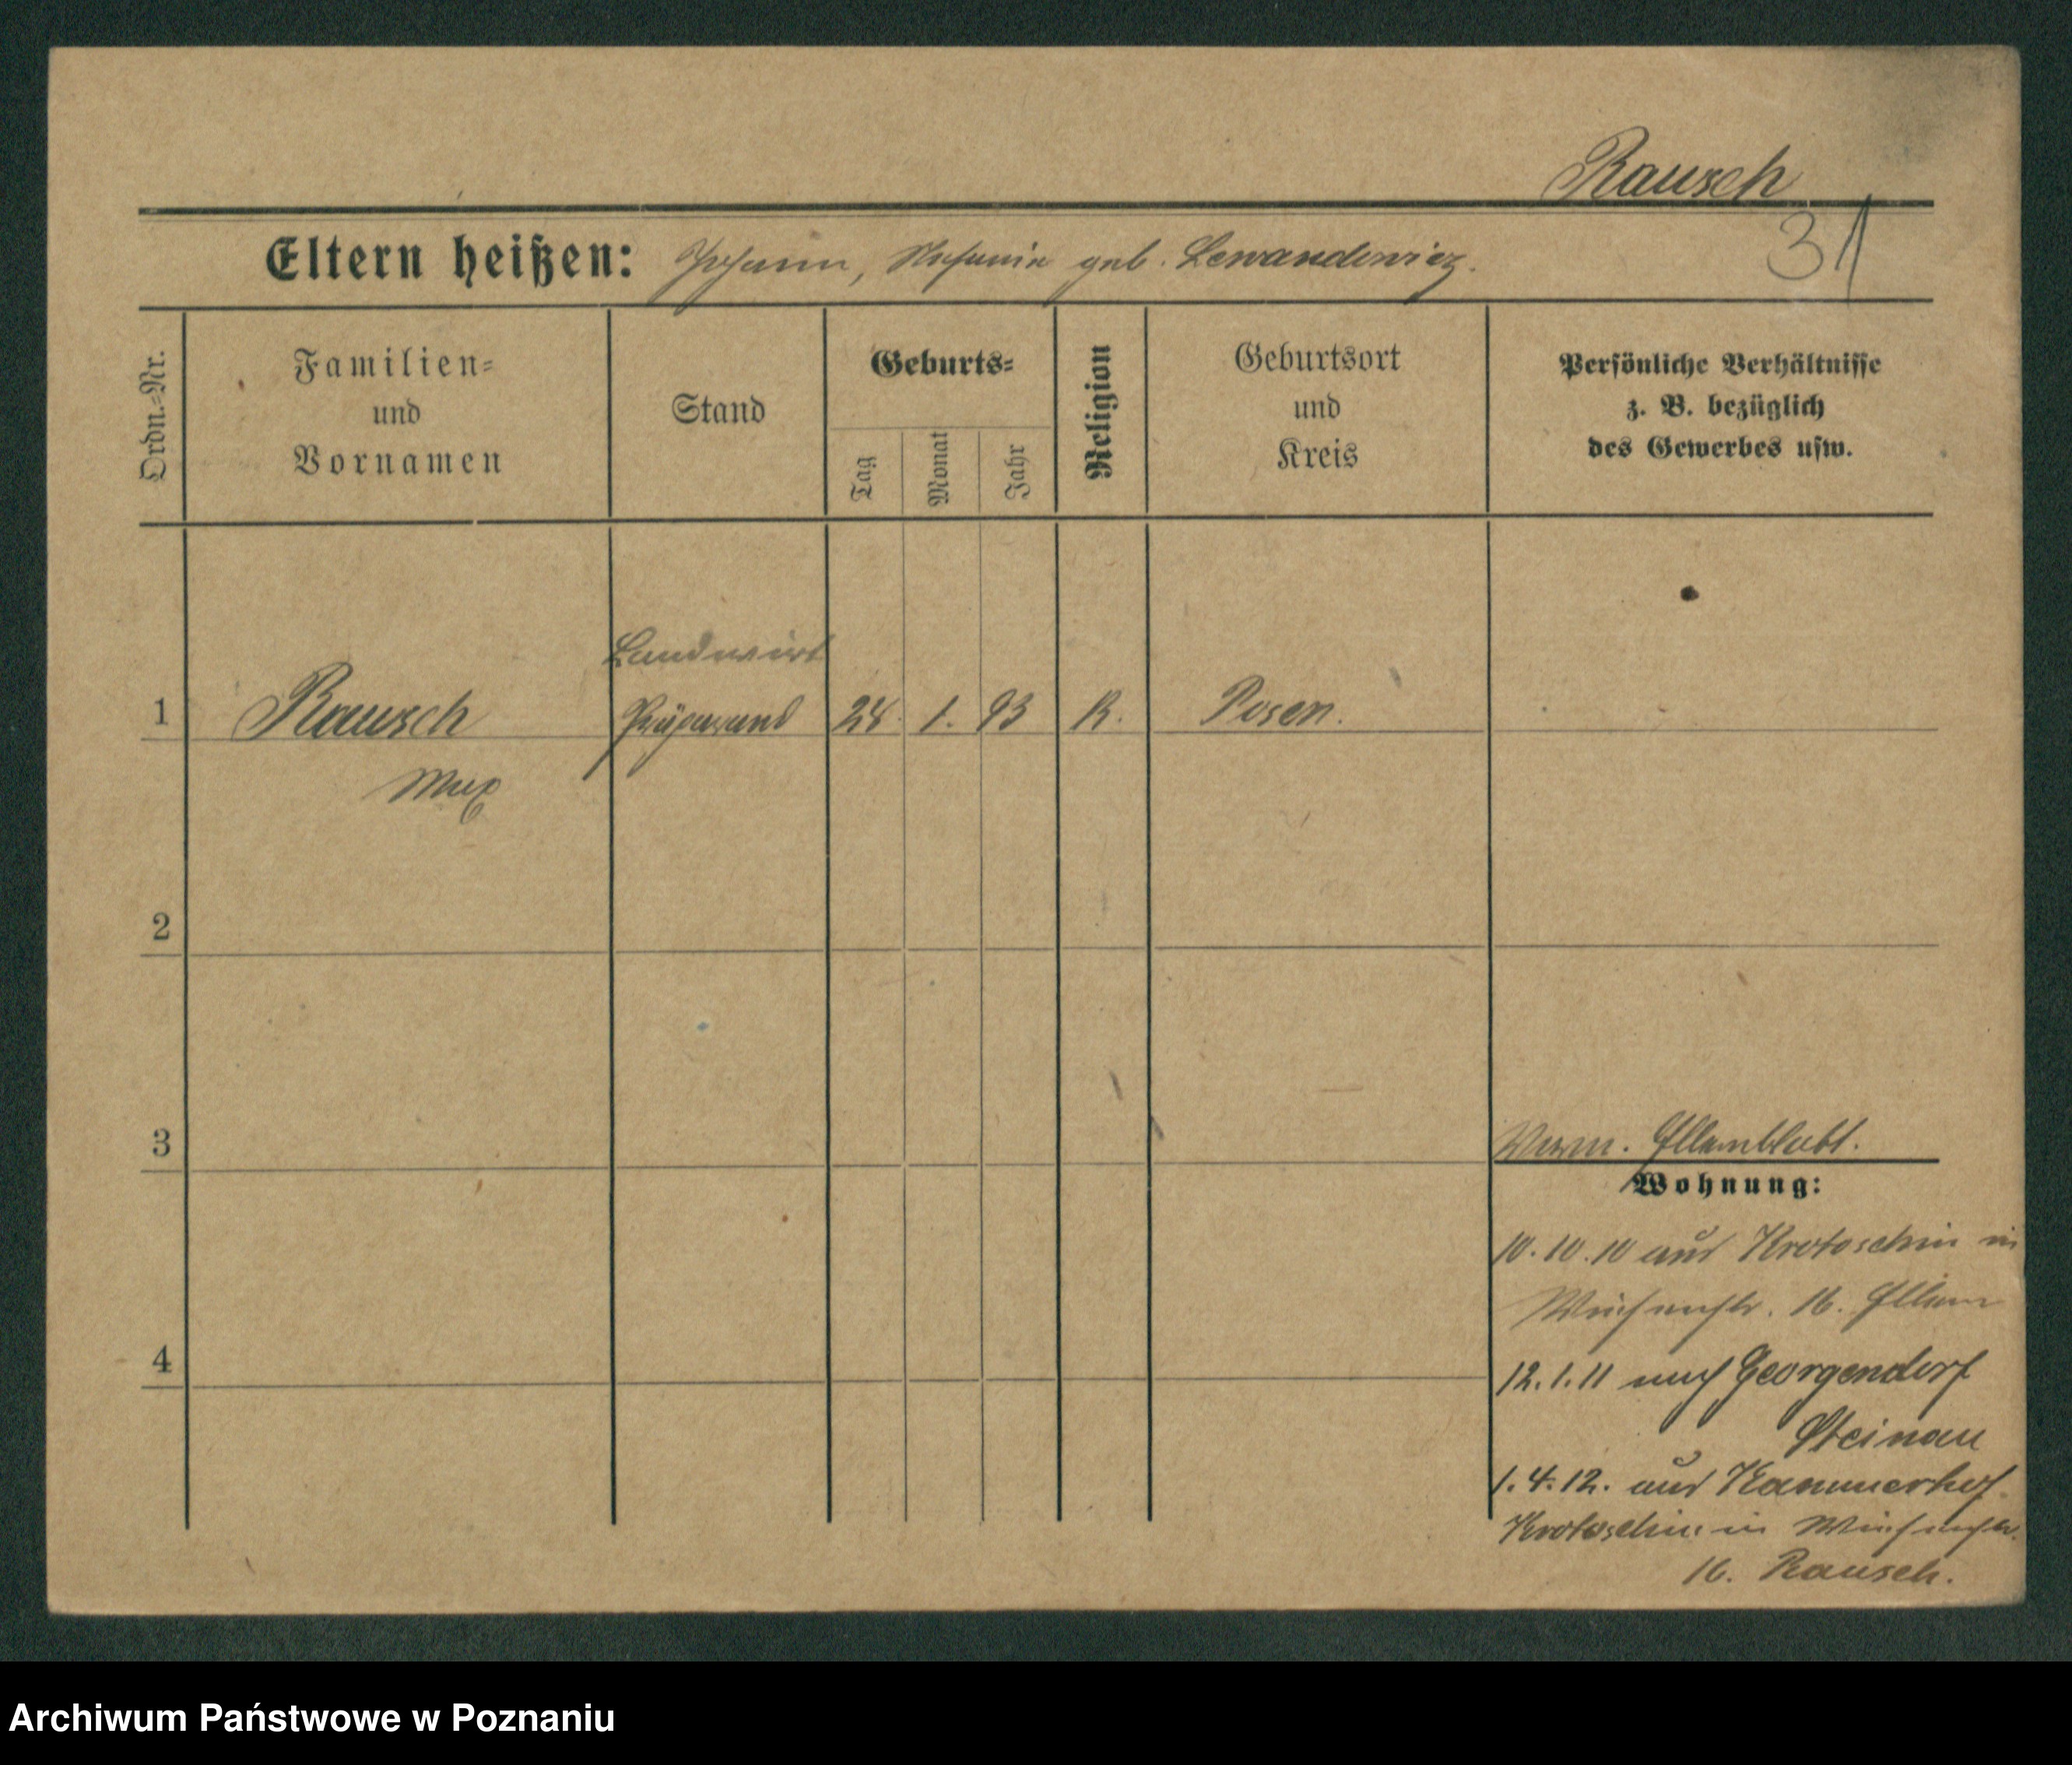 Rausch
31
Eltern heißen: Johann, Stefanie geb. Lewandowicz.
Ordn.=Nr.
Familien=
und
Vornamen
Stand
Geburts=
Tag
Monat
Jahr
Religion
Geburtsort
und
Kreis
Persönliche Verhältnisse
z. B. bezüglich
des Gewerbes usw.
Landwirt
1 Rausch Präparand 28. 1. 93 R. Posen.
Max
2
3
Verm. Elternblatt.
Wohnung:
10.10.10 aus Krotoschin in
16. Eltern
4
12.1.11 nach Georgendorf
Steinau
1.4.12. aus Kammerhof
Krotoschin in
16. Rausch.
Archiwum Państwowe w Poznaniu